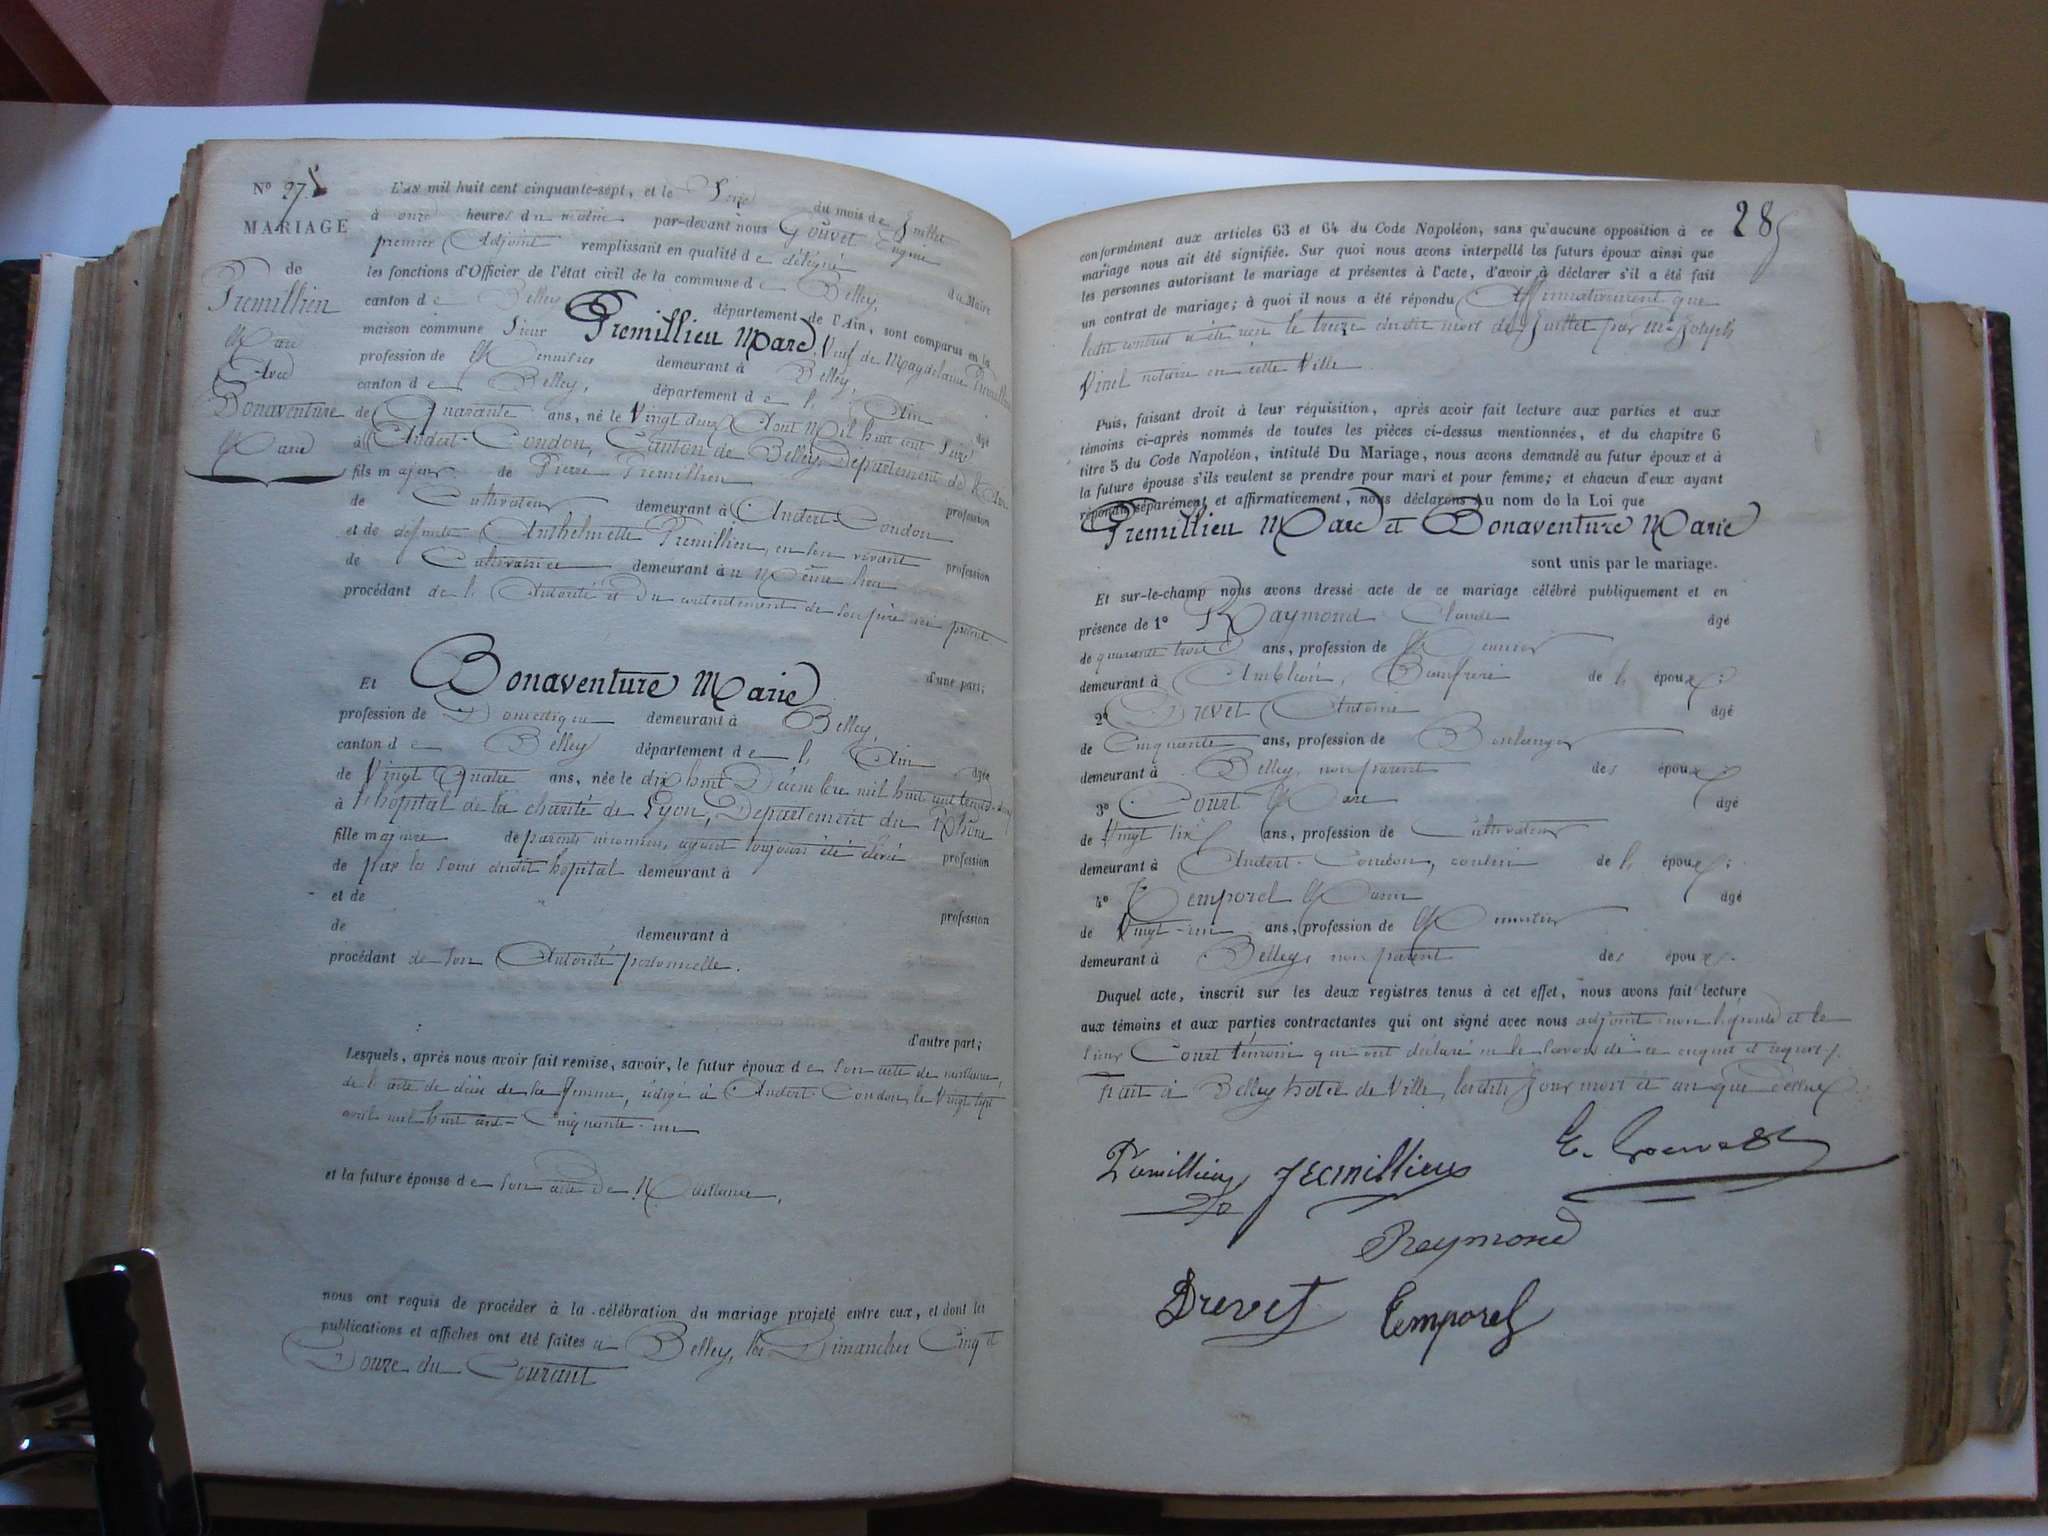 N° 27
MARIAGE
de
Premillieu
Marc
Avec
Bonaventure
Marie
L'AN mil huit cent cinquante-sept, et le du mois de Juillet
à onze heures du matin par-devant nous Gouvet Eugène
premier Adjoint remplissant en qualité de délégué du Maire
les fonctions d'Officier de l'état civil de la commune de Belley,
canton de Belley département de l'Ain, sont comparus en la
maison commune Sieur Premillieu Marc, Veuf de Magdelaine Premillieu
profession de Menuisier demeurant à Belley,
canton de Belley, département de l'Ain âgé
de Quarante ans, né le Vingt deux Août Mil huit cent Seize
à Andert-Condon, Canton de Belley, Département de l'Ain
fils majeur de Pierre Premillieu profession
de Cultivateur demeurant à Andert-Condon
et de défunte Anthelmette Premillieu, en son vivant profession
de Cultivatrice demeurant au Même lieu
procédant de l'Autorité et du consentement de son père ici présent
d'une part;
Et Bonaventure Marie
profession de Domestique demeurant à Belley,
canton de Belley département de l'Ain âgée
de Vingt Quatre ans, née le dix huit Décembre mil huit cent trente-deux
à l'hôpital de la charité de Lyon, Département du Rhône
fille majeure de parents inconnus, ayant toujours été élevée profession
de par les soins dudit hôpital demeurant à
et de profession
de demeurant à
procédant de son Autorité personnelle.
d'autre part;
Lesquels, après nous avoir fait remise, savoir, le futur époux de son acte de naissance,
de l'acte de décès de sa femme, rédigé à Andert-Condon, le Vingt sept
avril mil huit cent Cinquante-un
et la future épouse de son acte de Naissance,
nous ont requis de procéder à la célébration du mariage projeté entre eux, et dont les
publications et affiches ont été faites à Belley, les Dimanches Cinq et
Douze du Courant
28
conformément aux articles 63 et 64 du Code Napoléon, sans qu'aucune opposition à ce
mariage nous ait été signifiée. Sur quoi nous avons interpellé les futurs époux ainsi que
les personnes autorisant le mariage et présentes à l'acte, d'avoir à déclarer s'il a été fait
un contrat de mariage; à quoi il nous a été répondu Affirmativement que
ledit contrat a été reçu le treize dudit mois de Juillet par Me Joseph
Vinel notaire en cette Ville
Puis, faisant droit à leur réquisition, après avoir fait lecture aux parties et aux
témoins ci-après nommés de toutes les pièces ci-dessus mentionnées, et du chapitre 6
titre 5 du Code Napoléon, intitulé Du Mariage, nous avons demandé au futur époux et à
la future épouse s'ils veulent se prendre pour mari et pour femme; et chacun d'eux ayant
répondu séparément et affirmativement, nous déclarons Au nom de la Loi que
Premillieu Marc et Bonaventure Marie
sont unis par le mariage.
Et sur-le-champ nous avons dressé acte de ce mariage célébré publiquement et en
présence de 1° Raymond Claude âgé
de quarante trois ans, profession de Meunier
demeurant à Ambléon, Beaufrère de l'époux;
2° Drevet Antoine âgé
de Cinquante ans, profession de Boulanger
demeurant à Belley, non parent des époux;
3° Court Marc âgé
de Vingt six ans, profession de Cultivateur
demeurant à Andert-Condon, cousin de l'époux;
4° Temporel Marin âgé
de Vingt-un ans, profession de Menuisier
demeurant à Belley, non parent des époux.
Duquel acte, inscrit sur les deux registres tenus à cet effet, nous avons fait lecture
aux témoins et aux parties contractantes qui ont signé avec nous adjoint non l'épouse et le
sieur Court témoin qui ont déclaré ne le savoir de ce enquis et requis.
Fait à Belley hôtel de Ville, lesdits Jour mois et an que dessus
Premillieu Premillieu E. Gouvet
Reymond
Drevet Temporel